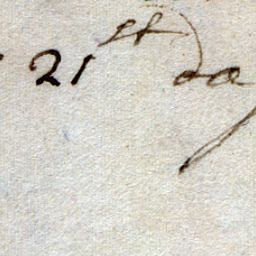 21st day